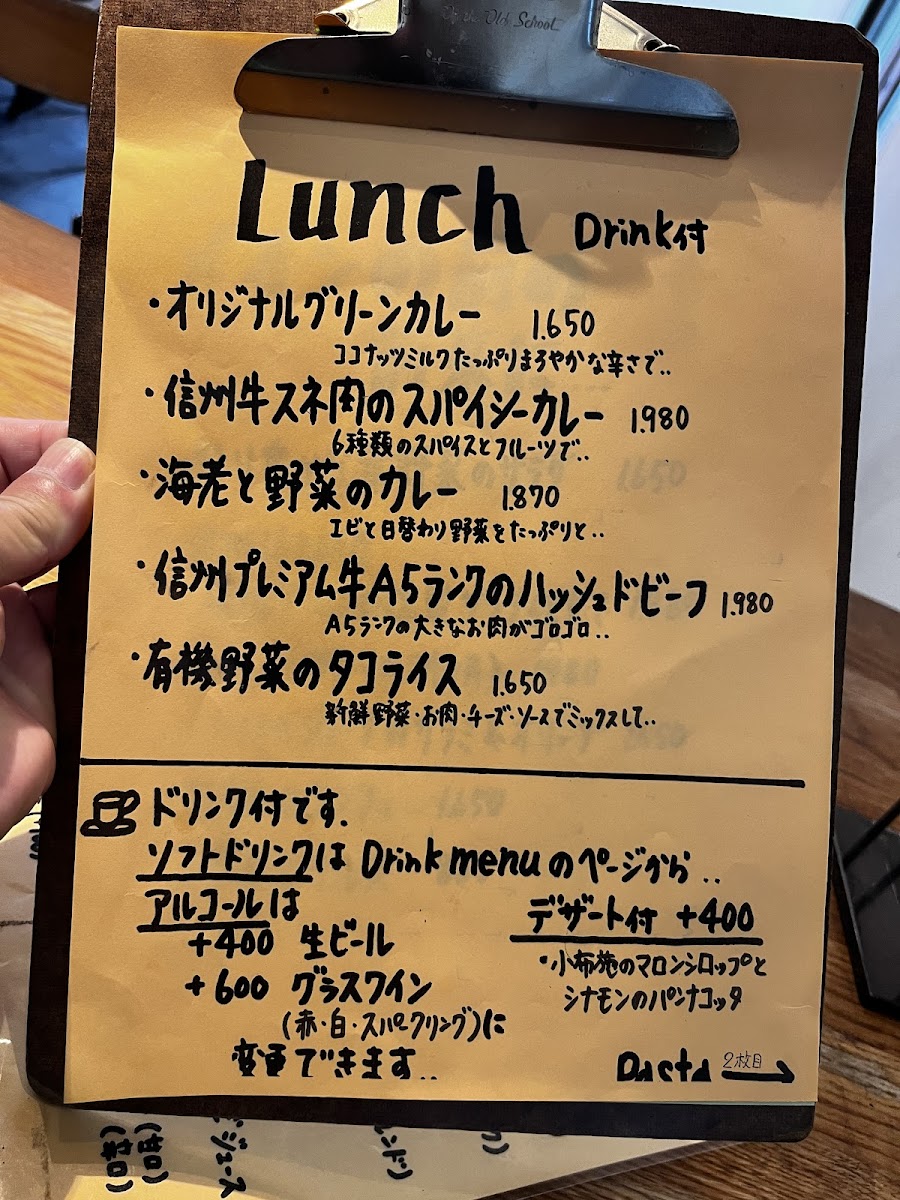 Old School
Lunch Drink付
・オリジナルグリーンカレー 1.650
ココナッツミルクたっぷりまろやかな辛さで..
・信州牛スネ肉のスパイシーカレー 1.980
6種類のスパイスとフルーツで..
・海老と野菜のカレー 1.870
エビと日替わり野菜をたっぷりと..
・信州プレミアム牛A5ランクのハッシュドビーフ 1.980
A5ランクの大きなお肉がゴロゴロ..
・有機野菜のタコライス 1.650
新鮮野菜・お肉・チーズ・ソースでミックスして..
ドリンク付です.
ソフトドリンクは Drink menuのページから..
アルコールは
+400 生ビール
+600 グラスワイン
(赤・白・スパークリング)に
変更できます..
デザート付 +400
・小布施のマロンシロップと
シナモンのパンナコッタ
Pasta 2枚目 →
(甘口)
(辛口)
ジュース